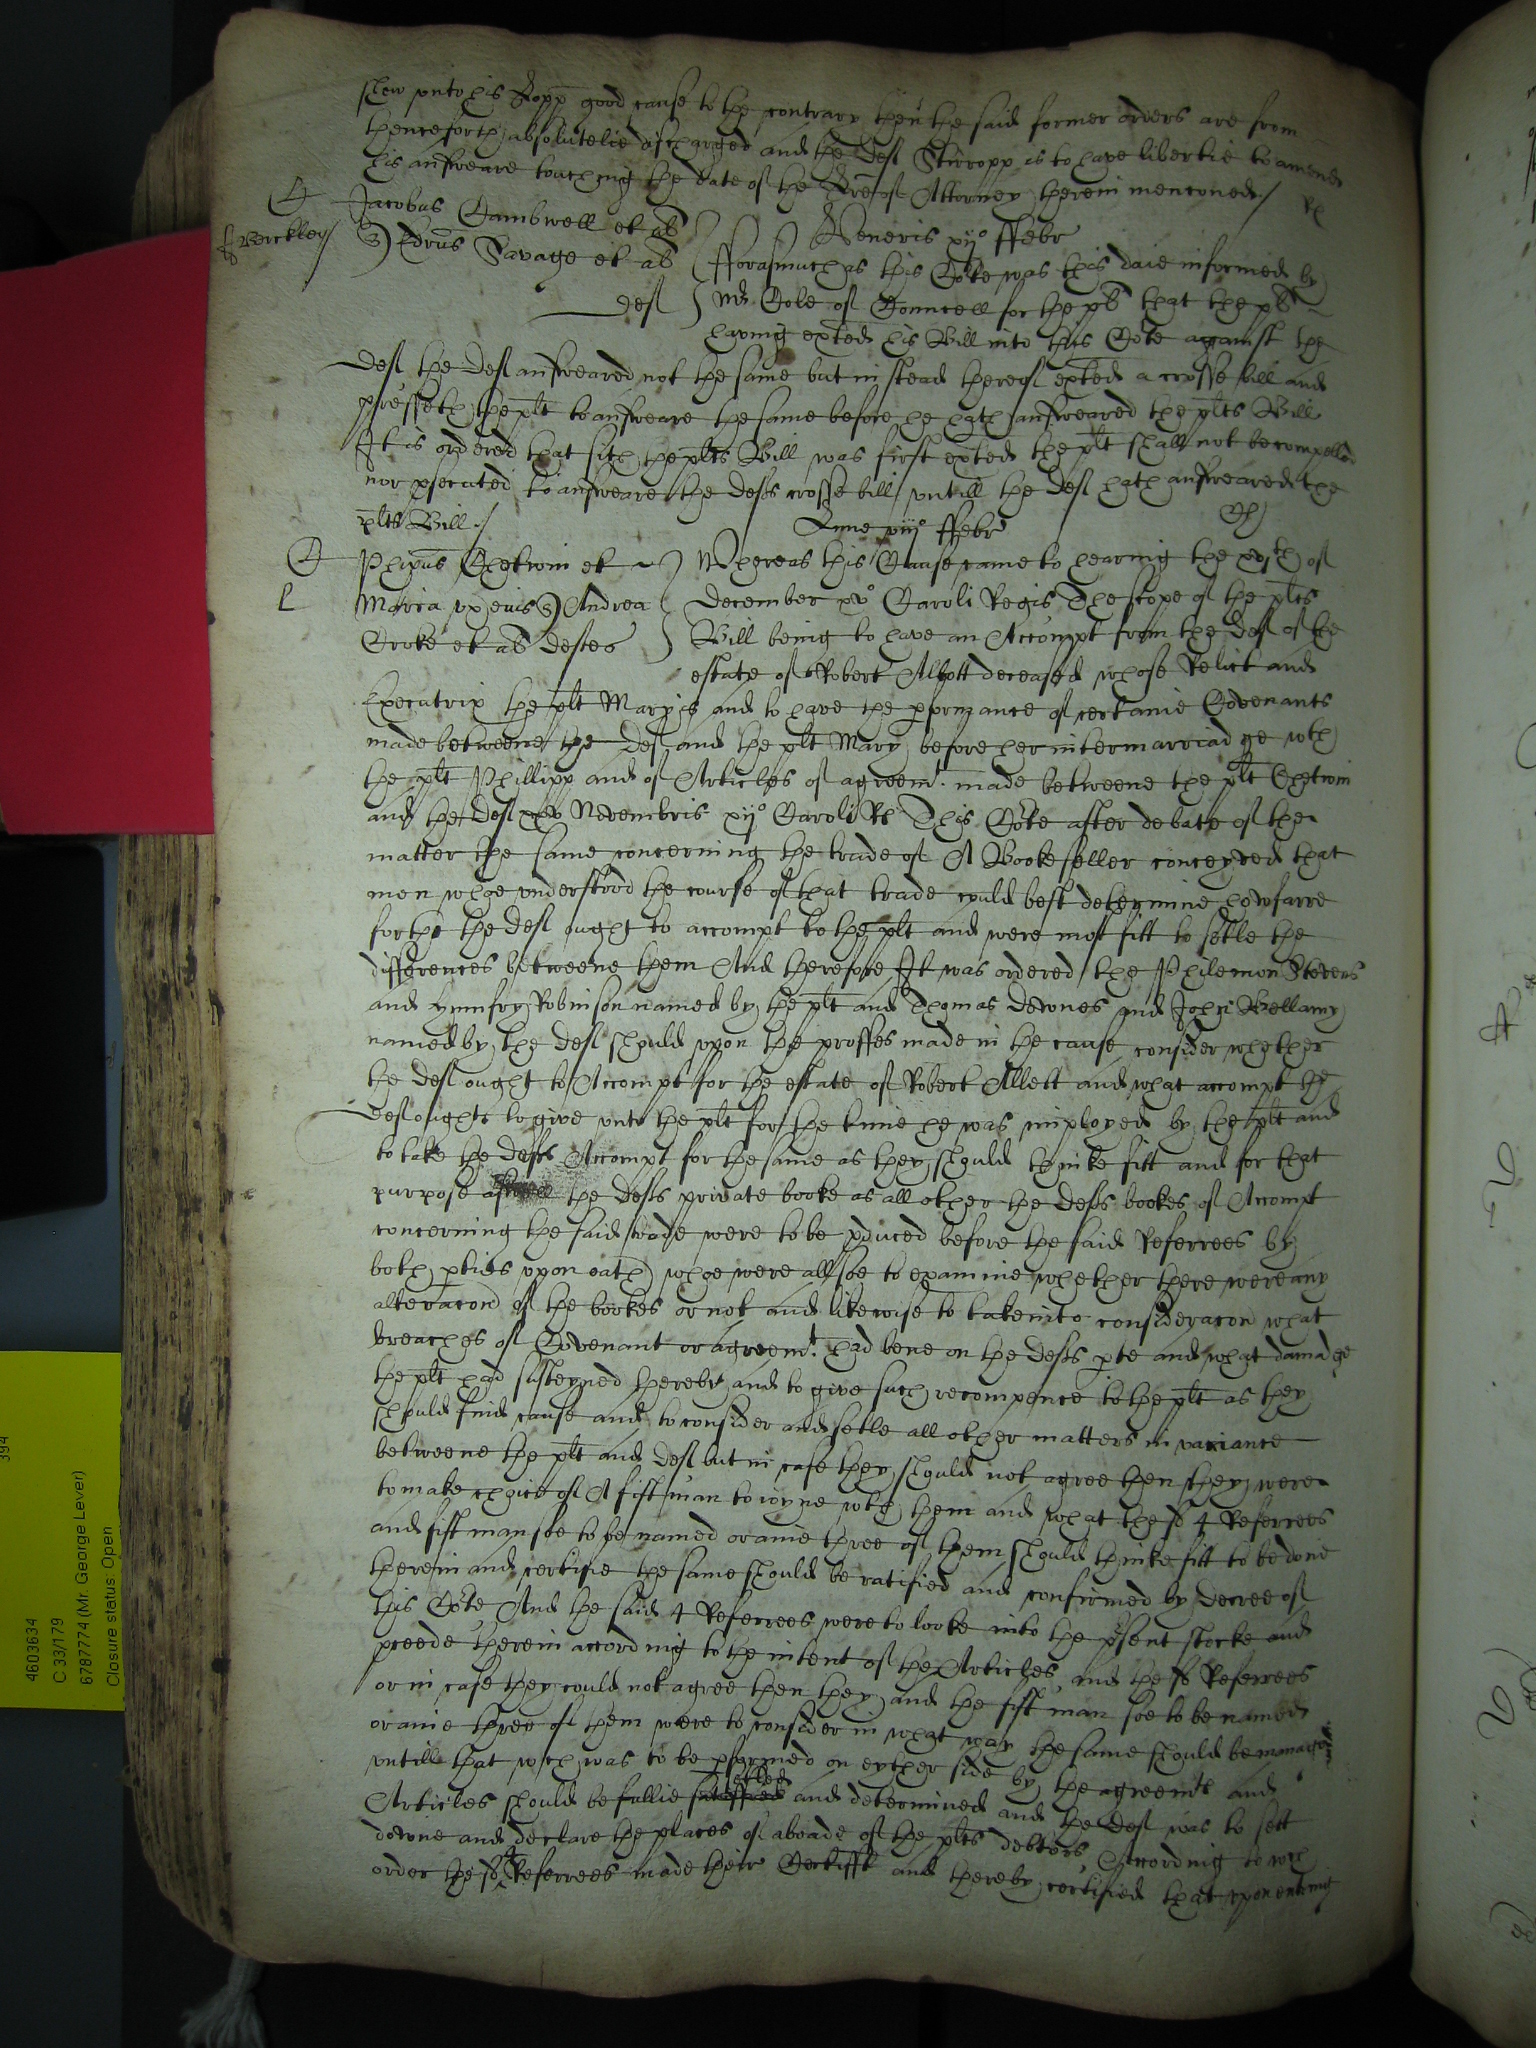 shew unto his Lopp good cause to the contrary then the said former orders are from
henceforth absolutelie discharged and the deft Stirropp is to have libertie to amend
his answeare touching the date of the Lre of Attorney therein menconed/
C Jacobus Cambwell et al
Berckley/ Savage et al
deft
Veneris vijo ffebr
fforasmuch as this Cote was this daie informed by
Mr Cole of Councell for the pl that the pl
having exhted his Bill into this Cote against the
deft the deft answeared not the same but in stead thereof exhted a crosse bill and
presseth the plt to answeare the same before he hath answeared the plts Bill
It is ordered that sith the plts Bill was first exhted the plt shall not be compelled
nor psecuted to answeare the defts crosse bill untill the deft hath answeared the
plts Bill/
Lune ffebr
C Phipus Chetwin et
L Maria ux eius Andrea
Crooke et al deftes
Whereas this Cause came to hearing the xvith of
December xvo Caroli Regis The scope of the plts
Bill being to have an Accompt from the deft of the
estate of Robert Allott deceased whose Relict and
Executrix the plt Mary is and to have the pformance of certaine Covenants
made betweene the deft and the plt Mary before her intermarriadge wth
the plt Phillipp and of Articles of agreemt made betweene the plt Chetwin
and the deft Novembris xijo Caroli Rs This Cote after debate of the
matter the same concerning the trade of A Bookeseller conceyved that
men whoe understood the course of that trade could best determine how farre
forthe the deft ought to accompt to the plt and were most fitt to setle the
differences betweene them And therefore It was ordered the Philemon Stevens
and Humfry Robinson named by the plt and Thomas Downes and John Bellamy
named by the deft should upon the proffes made in the cause consider whether
the deft ought to Accompt for the estate of Robert Allott and what accompt the
deft oughte to give unto the plt for the time he was imployed by the plt and
to take the defts Accompt for the same as they should thinke fitt and for that
purpose aswell the defts private booke as all other the defts bookes of Accompt
concerning the said trade were to be pduced before the said Referrees by
both pties upon oath whoe were allsoe to examine whether there were any
alteracon of the bookes or not and likewise to take into consideracon what
breaches of Covenant or agreemt had bene on the defts pte and what damadge
the plt had susteyned thereby and to give such recompence to the plt as they
should finde cause and to consider and setle all other matters in variance
betweene the plt and deft but in case they should not agree then they were
to make choice of A fift man to ioyne wth them and what the sd 4 Referrees
and fift man soe to be named or anie three of them should thinke fitt to be done
therein and certifie the same should be ratified and confirmed by decree of
this Cote And the said 4 Referrees were to looke into the psent stocke and
pceede therein according to the intent of the Articles and the sd Referrees
or in case they could not agree then they and the fift man soe to be named
or anie three of them were to consider in what way the same should be managed
untill that wch was to be pformed on eyther side by the agreemts and
Articles should be fullie setled and determined and the deft was to sett
downe and declare the places of aboade of the plts debtors According to wch
order the sd 4 Referrees made their Certifft and thereby certified that upon
4603634
C 33/179
6787774 (Mr. George Lever)
Closure status: Open
394